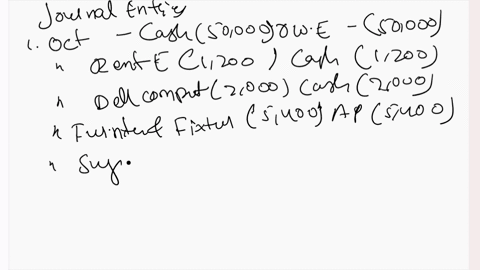 Journal Entries
1. Oct - Cash (50,000) ow.E - (50,000)
" Rent E (1,200) Cash (1,200)
" Dell comput (2,000) Cash (2,000)
" Furniture Fixtur (5,400) AP (5,400)
"